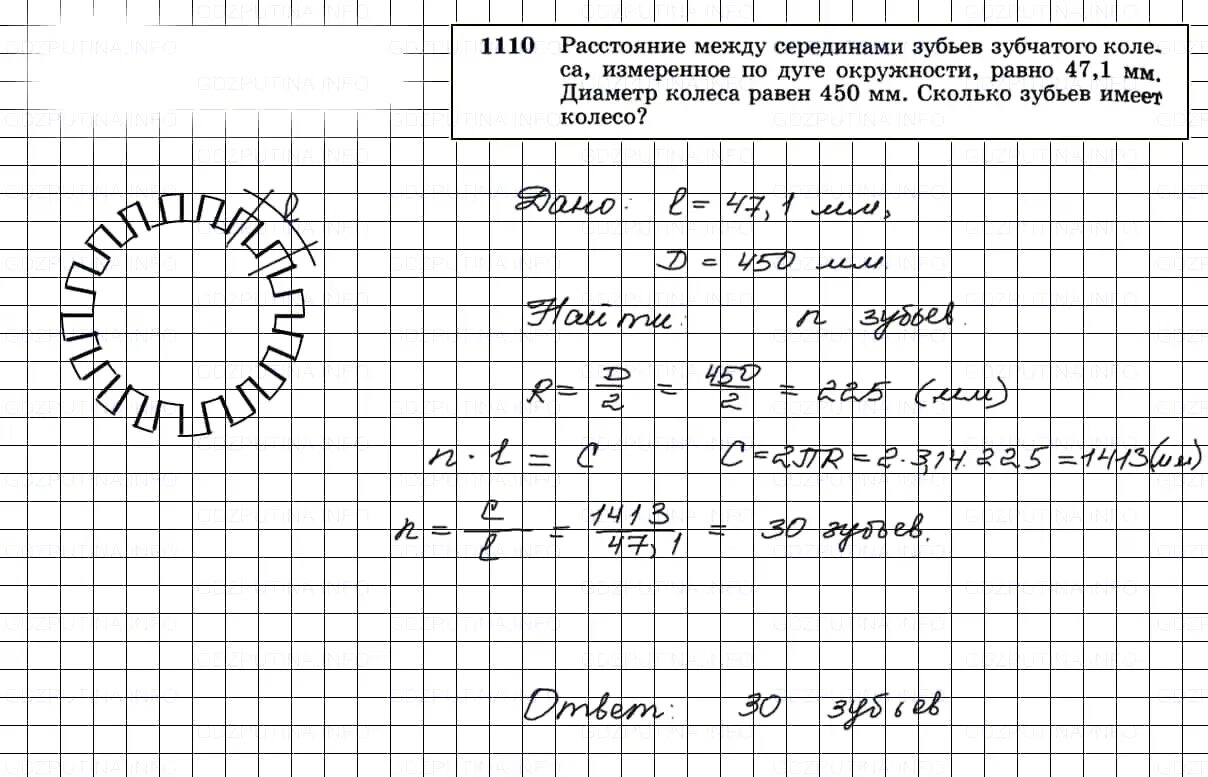 1110 Расстояние между серединами зубьев зубчатого коле-
са, измеренное по дуге окружности, равно 47,1 мм.
Диаметр колеса равен 450 мм. Сколько зубьев имеет
колесо?
l
Дано: l = 47,1 мм,
D = 450 мм.
Найти: n зубьев.
R = D/2 = 450/2 = 225 (мм)
n · l = C C = 2ПR = 2·3,14·225 = 1413 (мм)
n = C/l = 1413/47,1 = 30 зубьев.
Ответ: 30 зубьев
GDZPUTINA.INFO